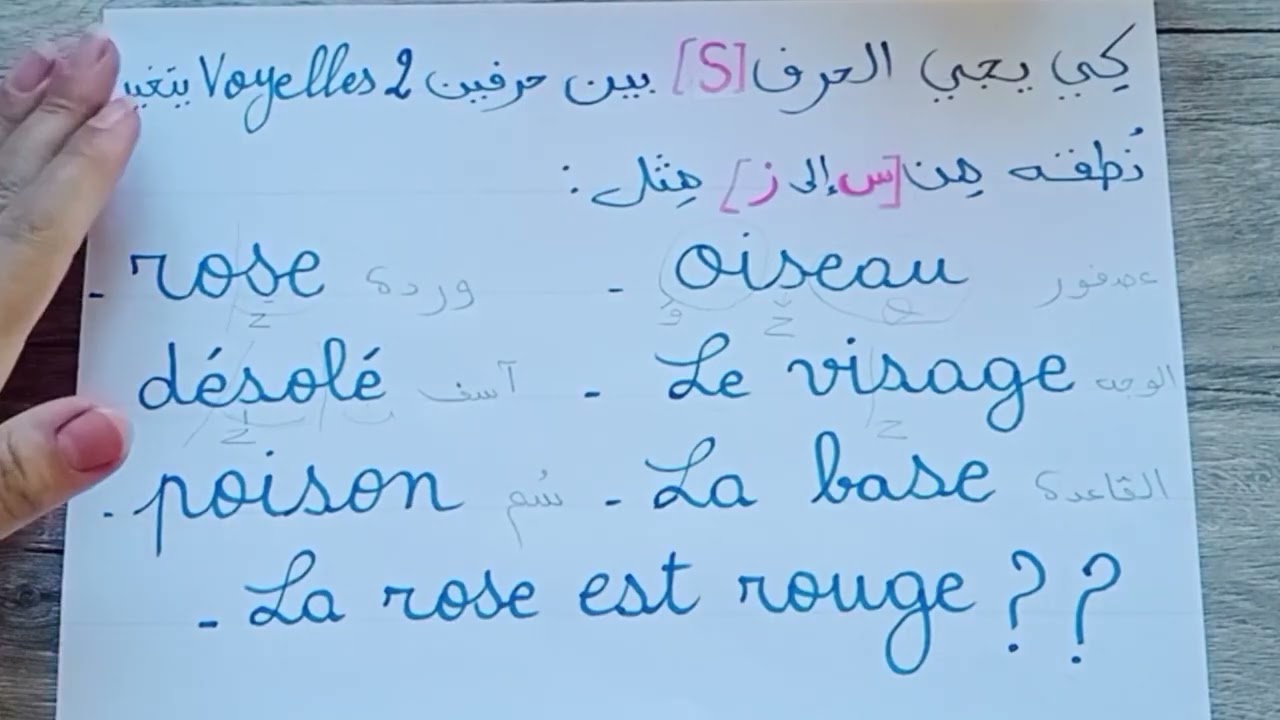 كي يجي الحرف [S] بين حرفين 2 Voyelles يتغير
نُطقه مِن [س إلى ز] مِثل :
- rose وردة - oiseau عصفور
z و z
désolé آسف - Le visage الوجه
z z
- poison سُم - La base القاعدة
- La rose est rouge ??